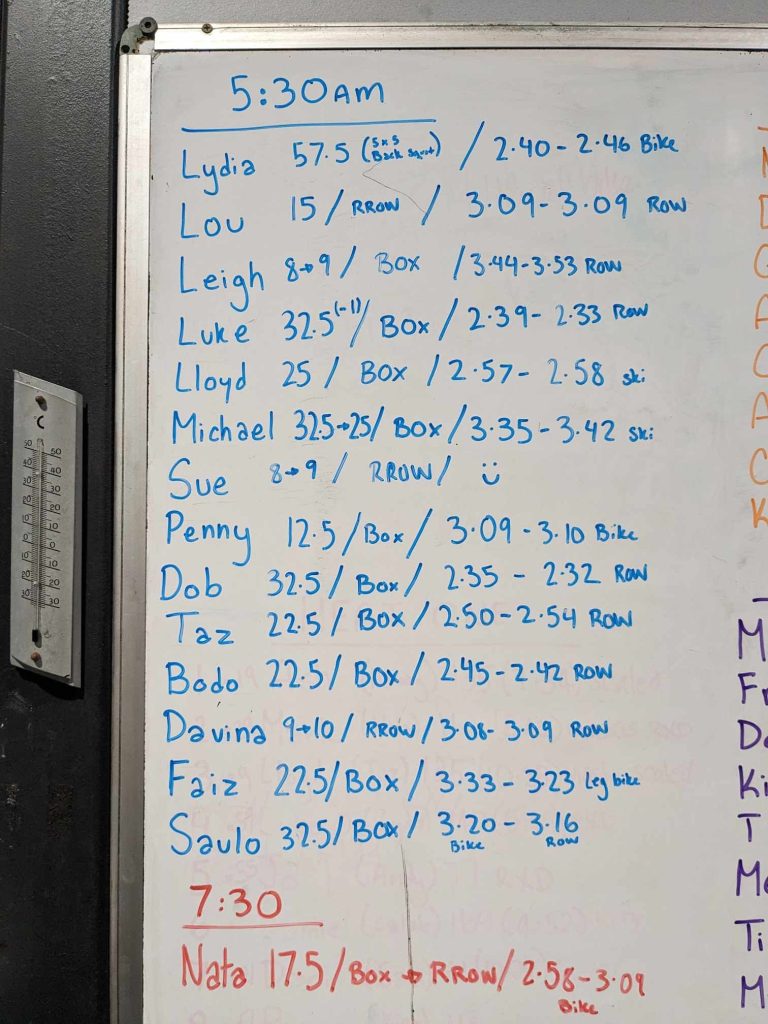 5:30AM
Lydia 57.5 (5x5 Back squat) / 2.40 - 2.46 Bike
Lou 15 / RROW / 3.09 - 3.09 Row
Leigh 8→9 / BOX / 3.44 - 3.53 Row
Luke 32.5(-1) / BOX / 2.39 - 2.33 Row
Lloyd 25 / BOX / 2.57 - 2.58 ski
Michael 32.5→25 / BOX / 3.35 - 3.42 ski
Sue 8→9 / RROW / ü
Penny 12.5 / Box / 3.09 - 3.10 Bike
Dob 32.5 / Box / 2.35 - 2.32 Row
Taz 22.5 / BOX / 2.50 - 2.54 ROW
Bodo 22.5 / BOX / 2.45 - 2.42 ROW
Davina 9→10 / RROW / 3.08 - 3.09 Row
Faiz 22.5 / BOX / 3.33 - 3.23 Leg bike
Saulo 32.5 / BOX / 3.20 - 3.16
Bike Row
7:30
Nata 17.5 / BOX → RROW / 2.58 - 3.09
Bike
°C